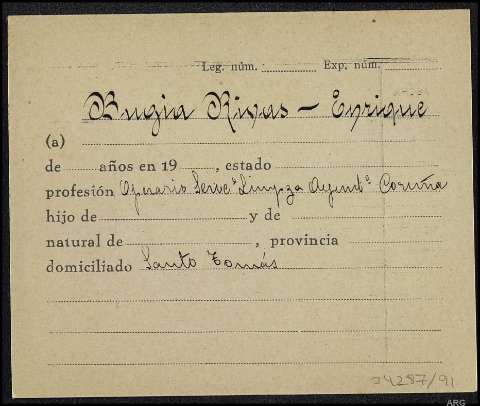 Leg. núm. Exp. núm.
Bugia Rivas - Enrique
(a)
de años en 19 , estado
profesión Operario Servº Limpza Ayuntº Coruña
hijo de y de
natural de , provincia
domiciliado Santo Tomás
24287/91
ARG